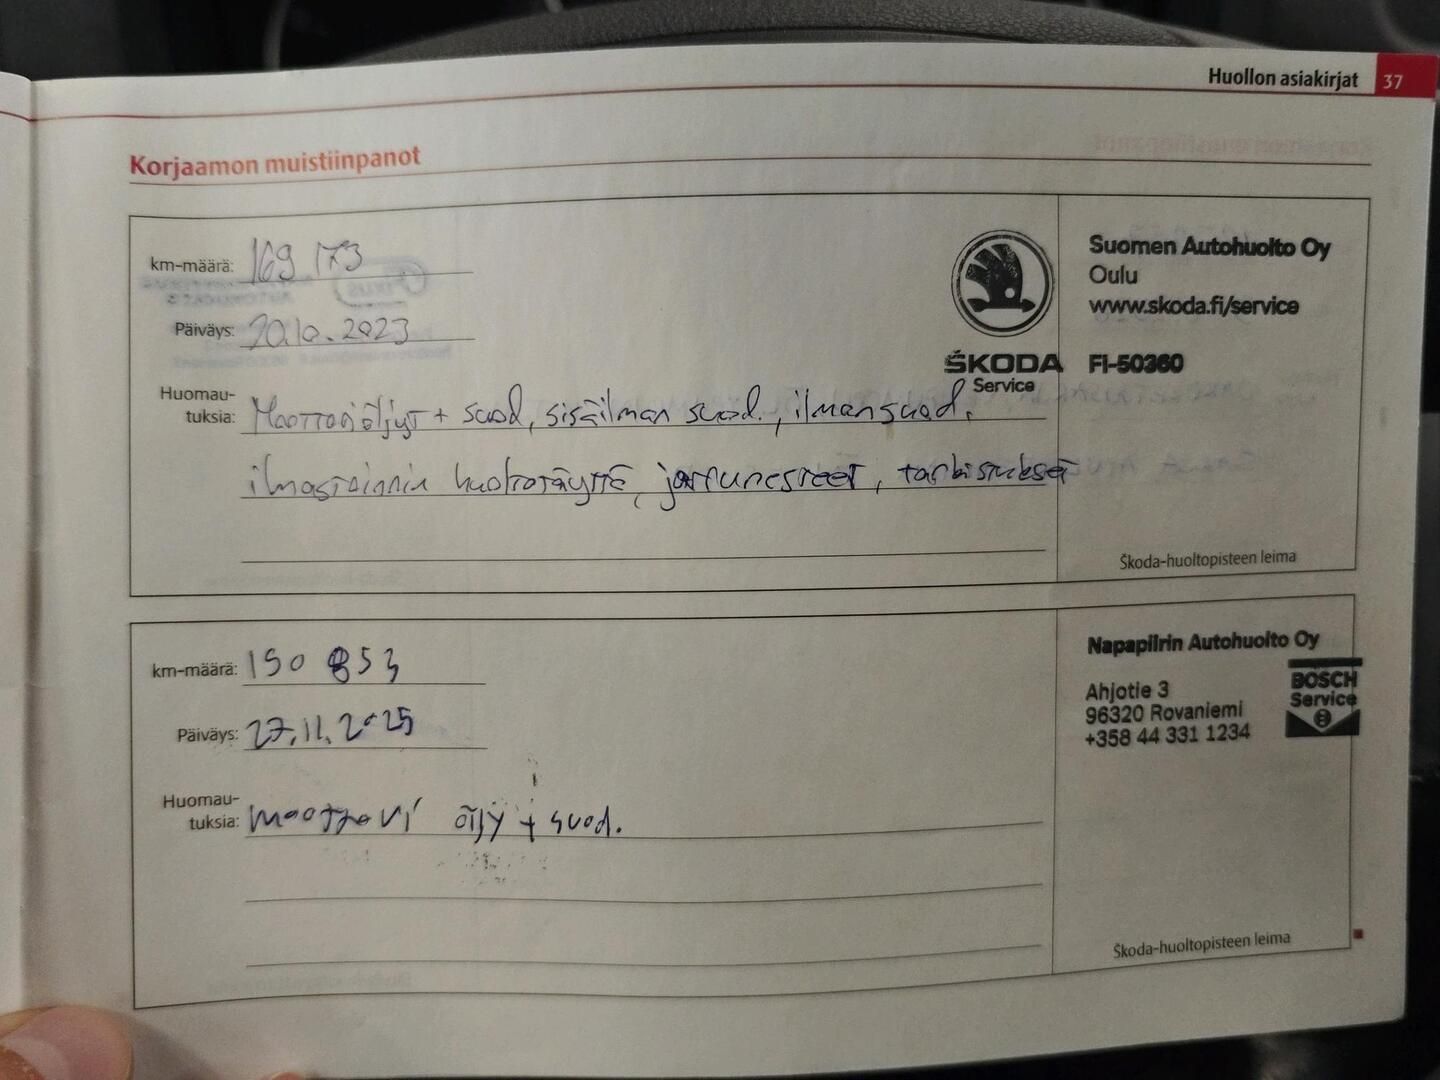 Huollon asiakirjat 37
Korjaamon muistiinpanot
km-määrä: 169 173
Päiväys: 20.10.2023
Huomau-
tuksia: Moottoriöljyt + suod, sisäilman suod., ilmansuod,
ilmastoinnin huoltotäyttö, jarrunesteet, tarkistukset
ŠKODA
Service
Suomen Autohuolto Oy
Oulu
www.skoda.fi/service
FI-50360
Škoda-huoltopisteen leima
km-määrä: 190 853
Päiväys: 27.11.2025
Huomau-
tuksia: moottori öljy + suod.
Napapiirin Autohuolto Oy
Ahjotie 3
96320 Rovaniemi
+358 44 331 1234
BOSCH
Service
Škoda-huoltopisteen leima